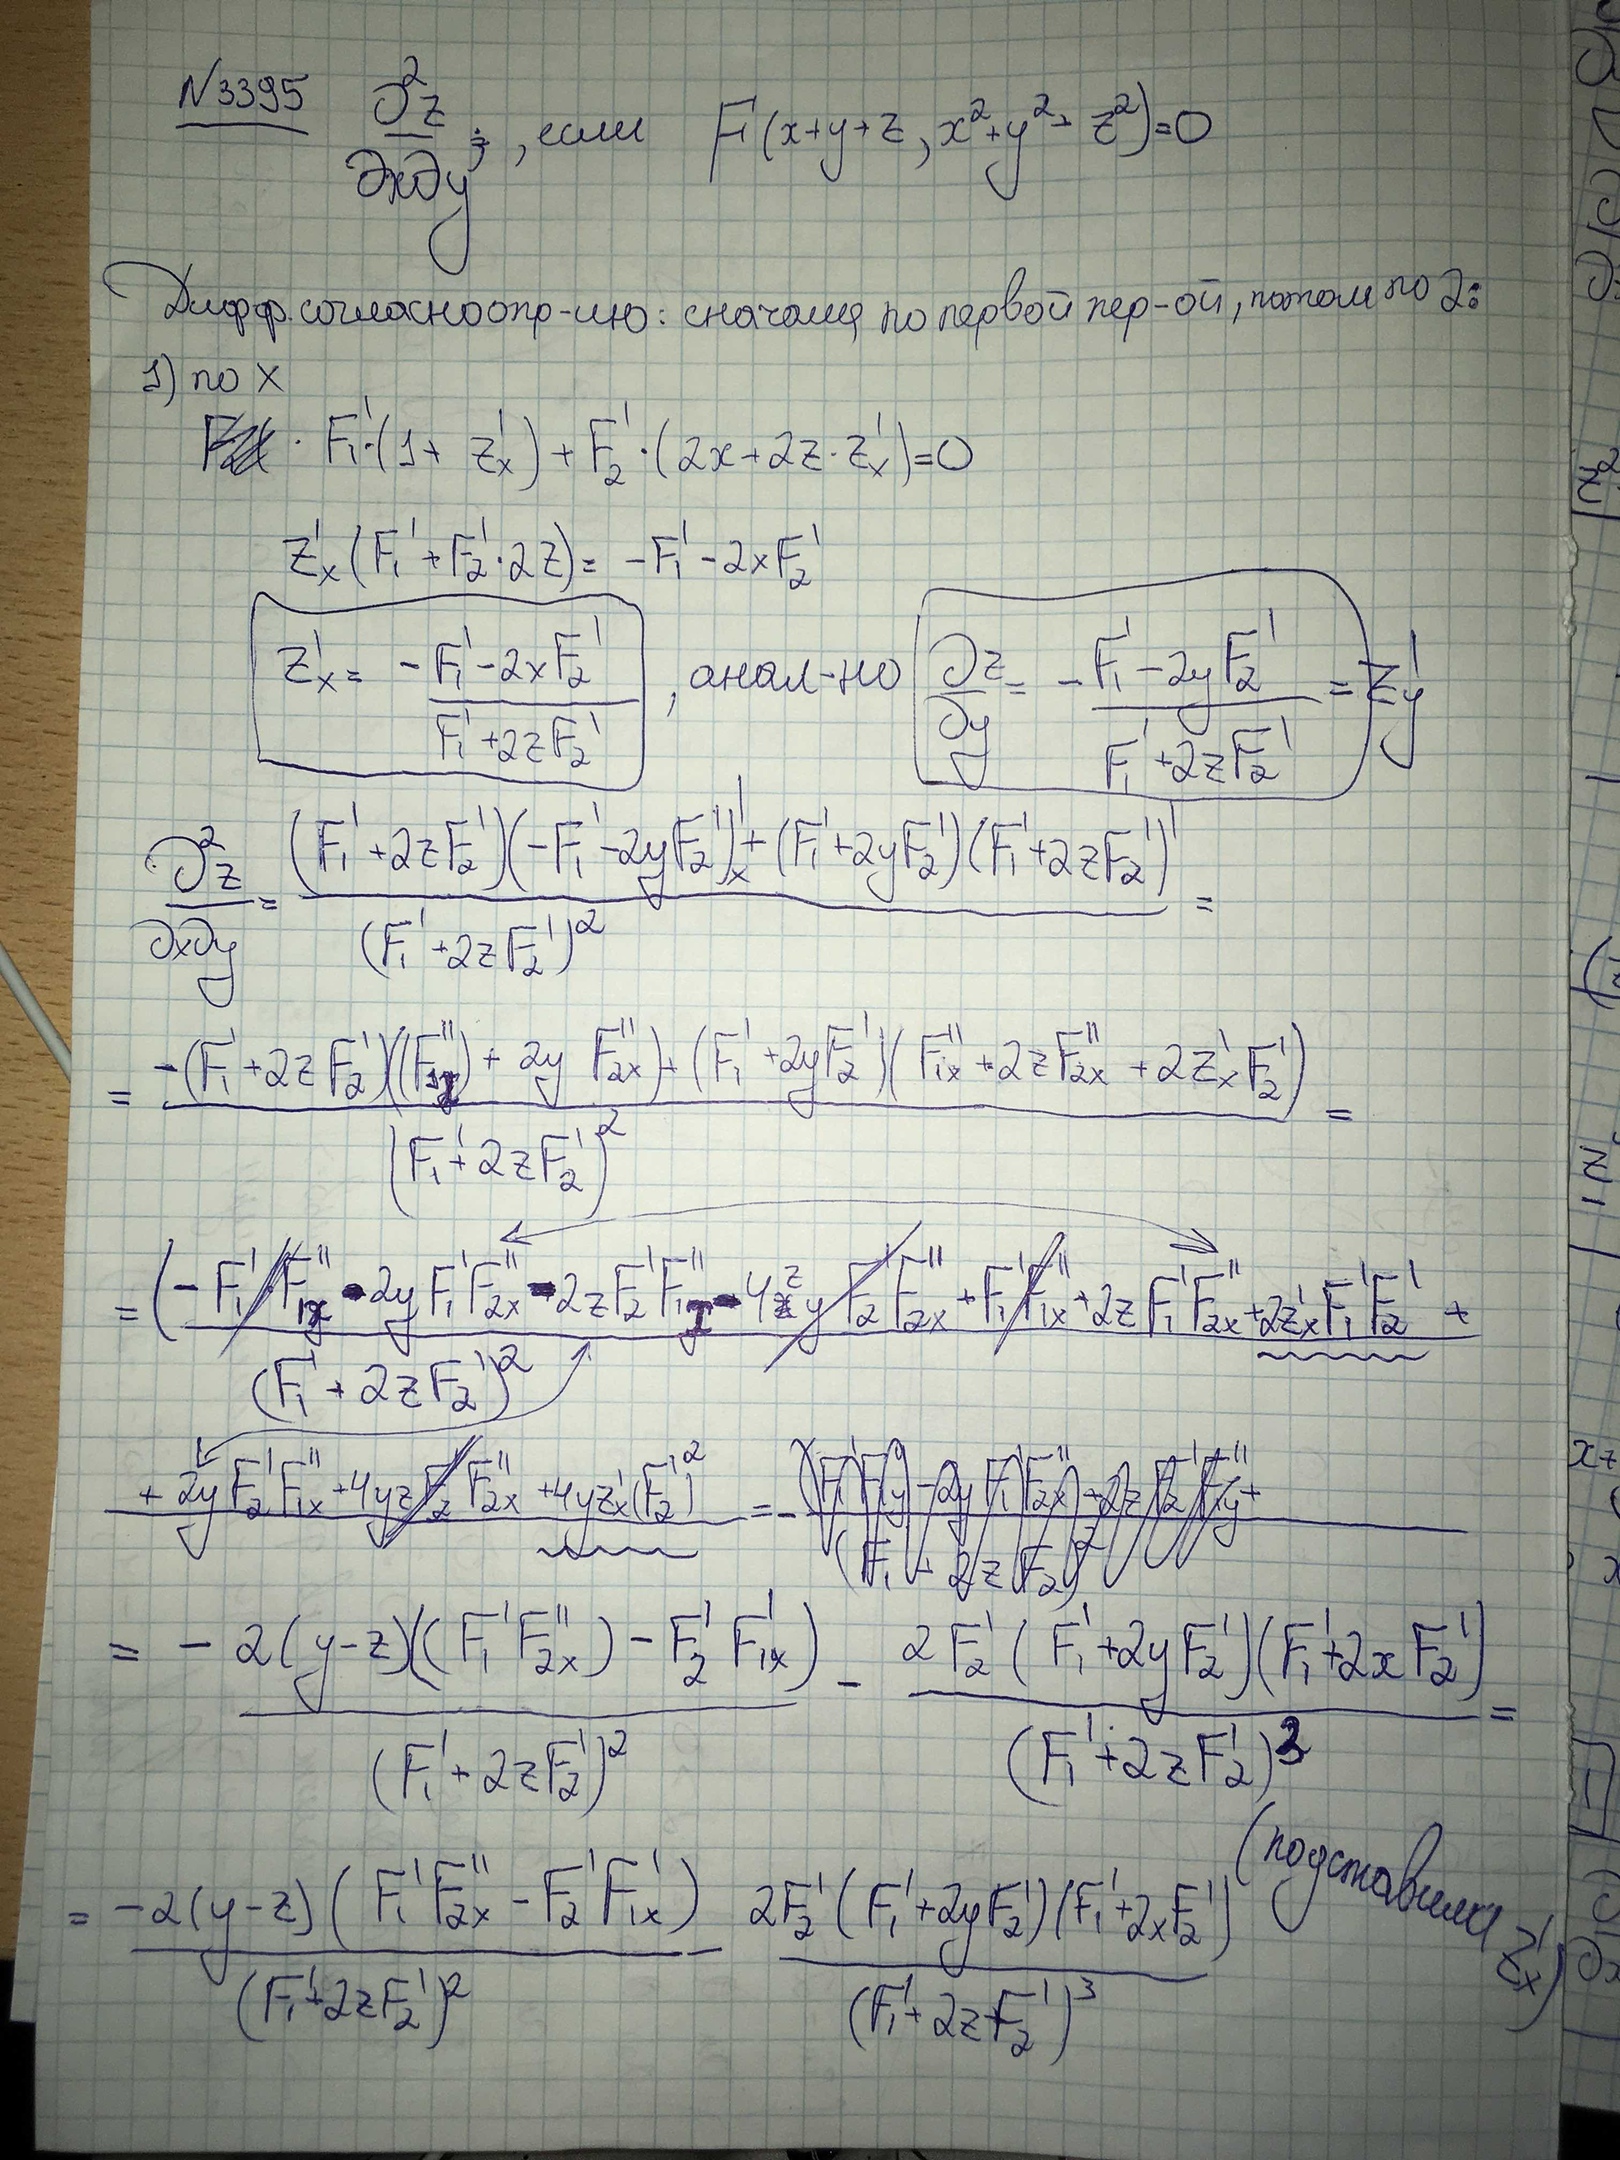 N3395 ∂²z/∂x∂y, если F(x+y+z, x²+y²+z²)=0
Дифф. согласно опр-ию: сначала по первой пер-ой, потом по 2:
1) по x
· F₁'·(1+z'ₓ)+F₂'·(2x+2z·z'ₓ)=0
z'ₓ(F₁'+F₂'·2z)= -F₁'-2xF₂'
z'ₓ= (-F₁'-2xF₂')/(F₁'+2zF₂') , анал-но ∂z/∂y = (-F₁'-2yF₂')/(F₁'+2zF₂') = z'y
∂²z/∂x∂y = ((F₁'+2zF₂')(-F₁'-2yF₂')'ₓ+(F₁'+2yF₂')(F₁'+2zF₂')')/(F₁'+2zF₂')² =
= (-(F₁'+2zF₂')((F₁ₓ'')+2yF₂ₓ'')+(F₁'+2yF₂')(F₁ₓ''+2zF₂ₓ''+2z'ₓF₂'))/(F₁'+2zF₂')² =
= (-F₁'F₁ₓ''-2yF₁'F₂ₓ''-2zF₂'F₁ₓ''-4zyF₂'F₂ₓ''+F₁'F₁ₓ''+2zF₁'F₂ₓ''+2z'ₓF₁'F₂'+
(F₁'+2zF₂')²
+2yF₂'F₁ₓ''+4yzF₂'F₂ₓ''+4yz'ₓ(F₂')² =
= -2(y-z)((F₁'F₂ₓ'')-F₂'F₁ₓ')/(F₁'+2zF₂')² - 2F₂'(F₁'+2yF₂')(F₁'+2xF₂')/(F₁'+2zF₂')³ =
= -2(y-z)(F₁'F₂ₓ''-F₂'F₁ₓ')/(F₁'+2zF₂')² - 2F₂'(F₁'+2yF₂')(F₁'+2xF₂')/(F₁'+2zF₂')³ (подставили z'ₓ)